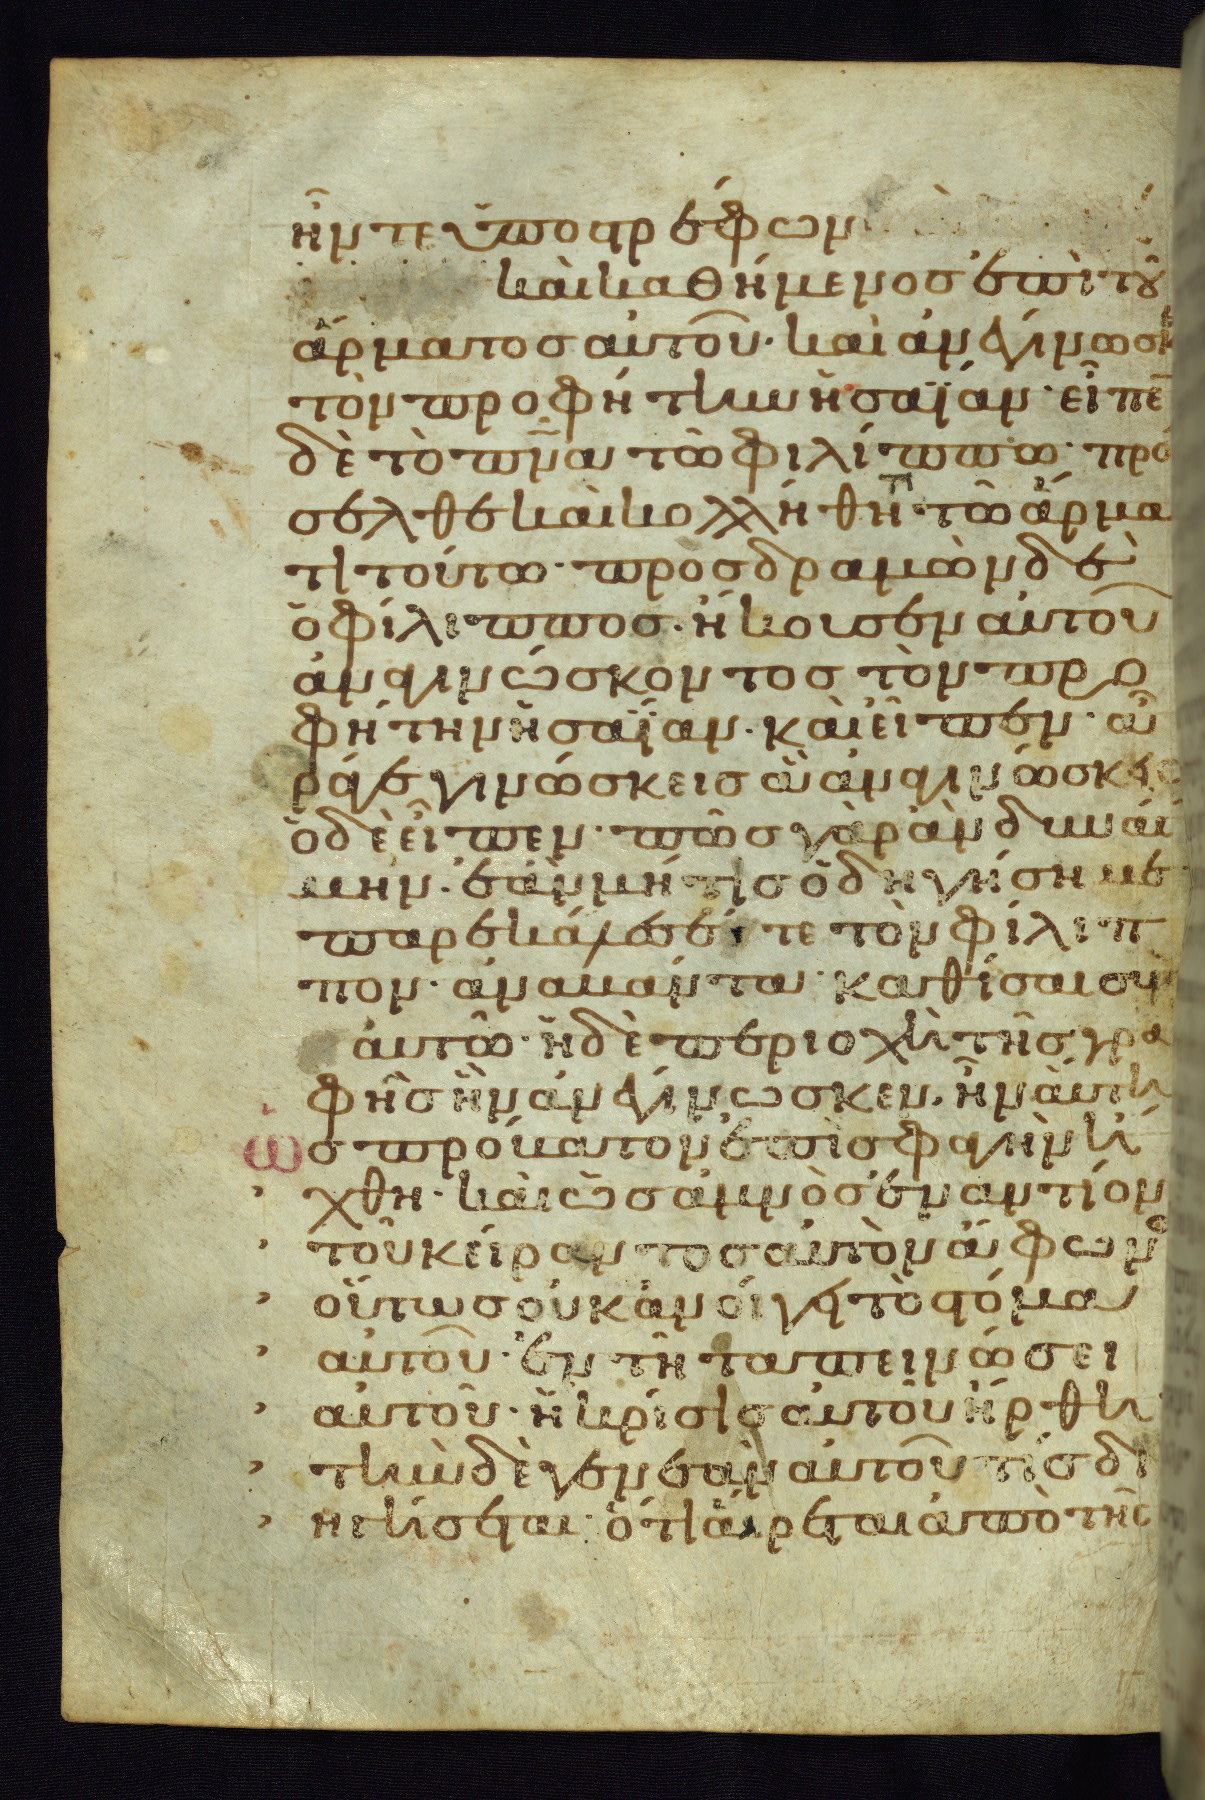 ἦν τε ὑποστρέφων
καὶ καθήμενος ἐπὶ τοῦ
ἅρματος αὐτοῦ· καὶ ἀνεγίνωσκε
τὸν προφήτην ἠσαΐαν· εἶπε
δὲ τὸ πνα τῶ φιλίππω· πρό
σελθε καὶ κολλήθητι τῶ ἅρμα
τι τούτω· προσδραμὼν δὲ
ὁ φίλιππος· ἤκουσεν αὐτοῦ
ἀναγινώσκοντος τὸν προ
φήτην ἠσαΐαν· καὶ εἶπεν· ἆ
ρά γε γινώσκεις ἃ ἀναγινώσκεις
ὁ δὲ εἶπεν· πῶς γὰρ ἂν δυναί
μην· ἐὰν μή τις ὁδηγήση με
παρεκάλεσέ τε τὸν φίλιπ
πον· ἀναβάντα καθίσαι σὺν
αὐτῶ· ἡ δὲ περιοχὴ τῆς γρα
φῆς ἣν ἀνεγίνωσκεν· ἦν αὕτη
ὡς πρόβατον ἐπὶ σφαγὴν ἤ
χθη· καὶ ὡς ἀμνὸς ἐναντίον
τοῦ κείραντος αὐτὸν ἄφωνο
οὕτως οὐκ ἀνοίγει τὸ στόμα
αὐτοῦ· ἐν τῆ ταπεινώσει
αὐτοῦ· ἡ κρίσις αὐτοῦ ἤρθη
τὴν δὲ γενεὰν αὐτοῦ τίς δι
ηγήσεται· ὅτι αἴρεται ἀπὸ τῆς